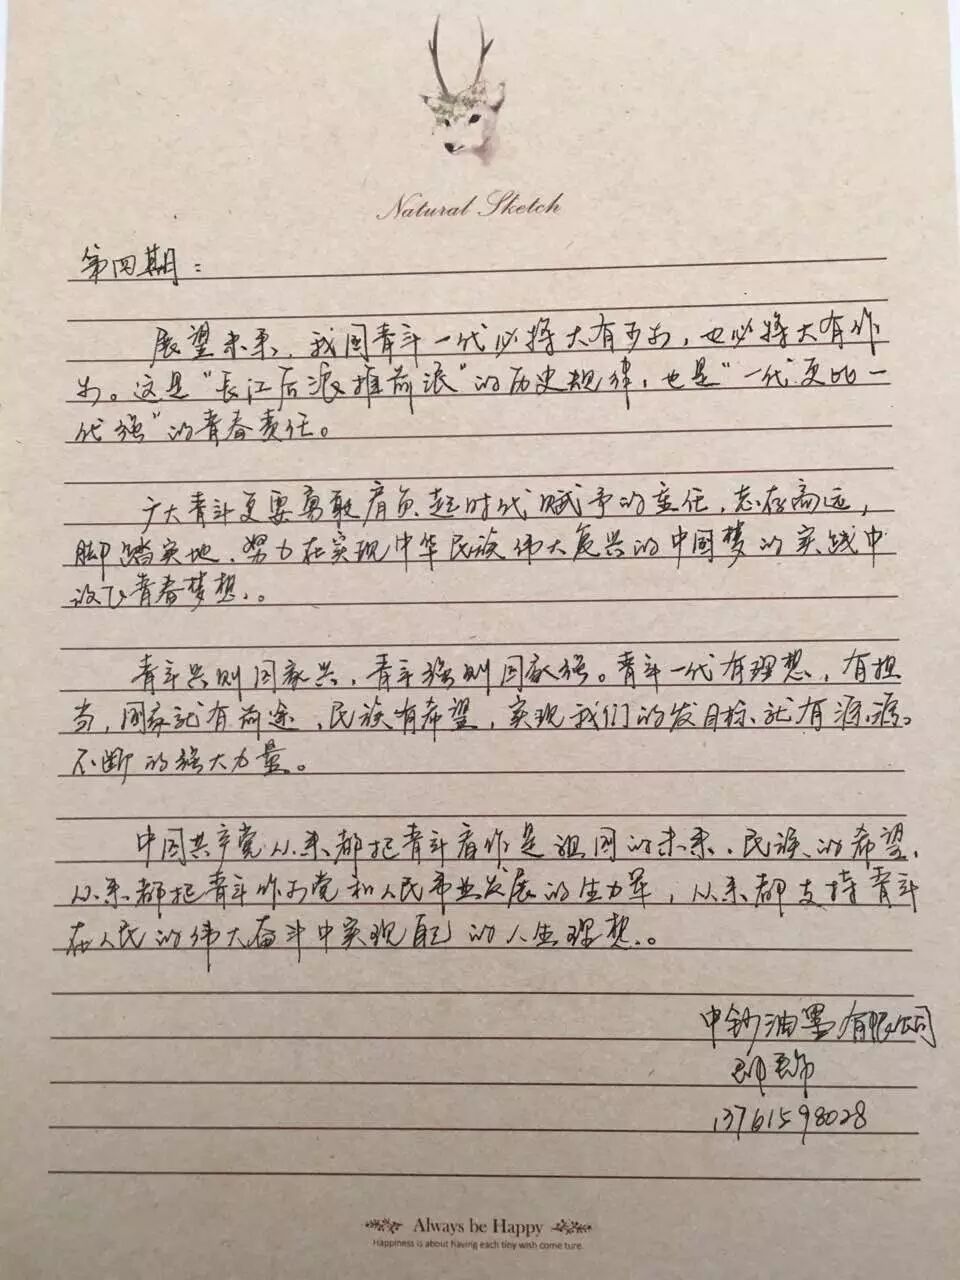 Natural Sketch
第四期：
展望未来，我国青年一代必将大有可为，也必将大有作
为。这是"长江后浪推前浪"的历史规律，也是"一代更比一
代强"的青春责任。
广大青年更要勇敢肩负起时代赋予的重任，志存高远，
脚踏实地，努力在实现中华民族伟大复兴的中国梦的实践中
放飞青春梦想。
青年兴则国家兴，青年强则国家强。青年一代有理想，有担
当，国家就有前途，民族有希望，实现我们的发目标就有源源
不断的强大力量。
中国共产党从来都把青年看作是祖国的未来、民族的希望，
从来都把青年作为党和人民事业发展的生力军，从来都支持青年
在人民的伟大奋斗中实现自己的人生理想。
中钞油墨有限公司
13761598028
Always be Happy
Happiness is about having each tiny wish come ture.